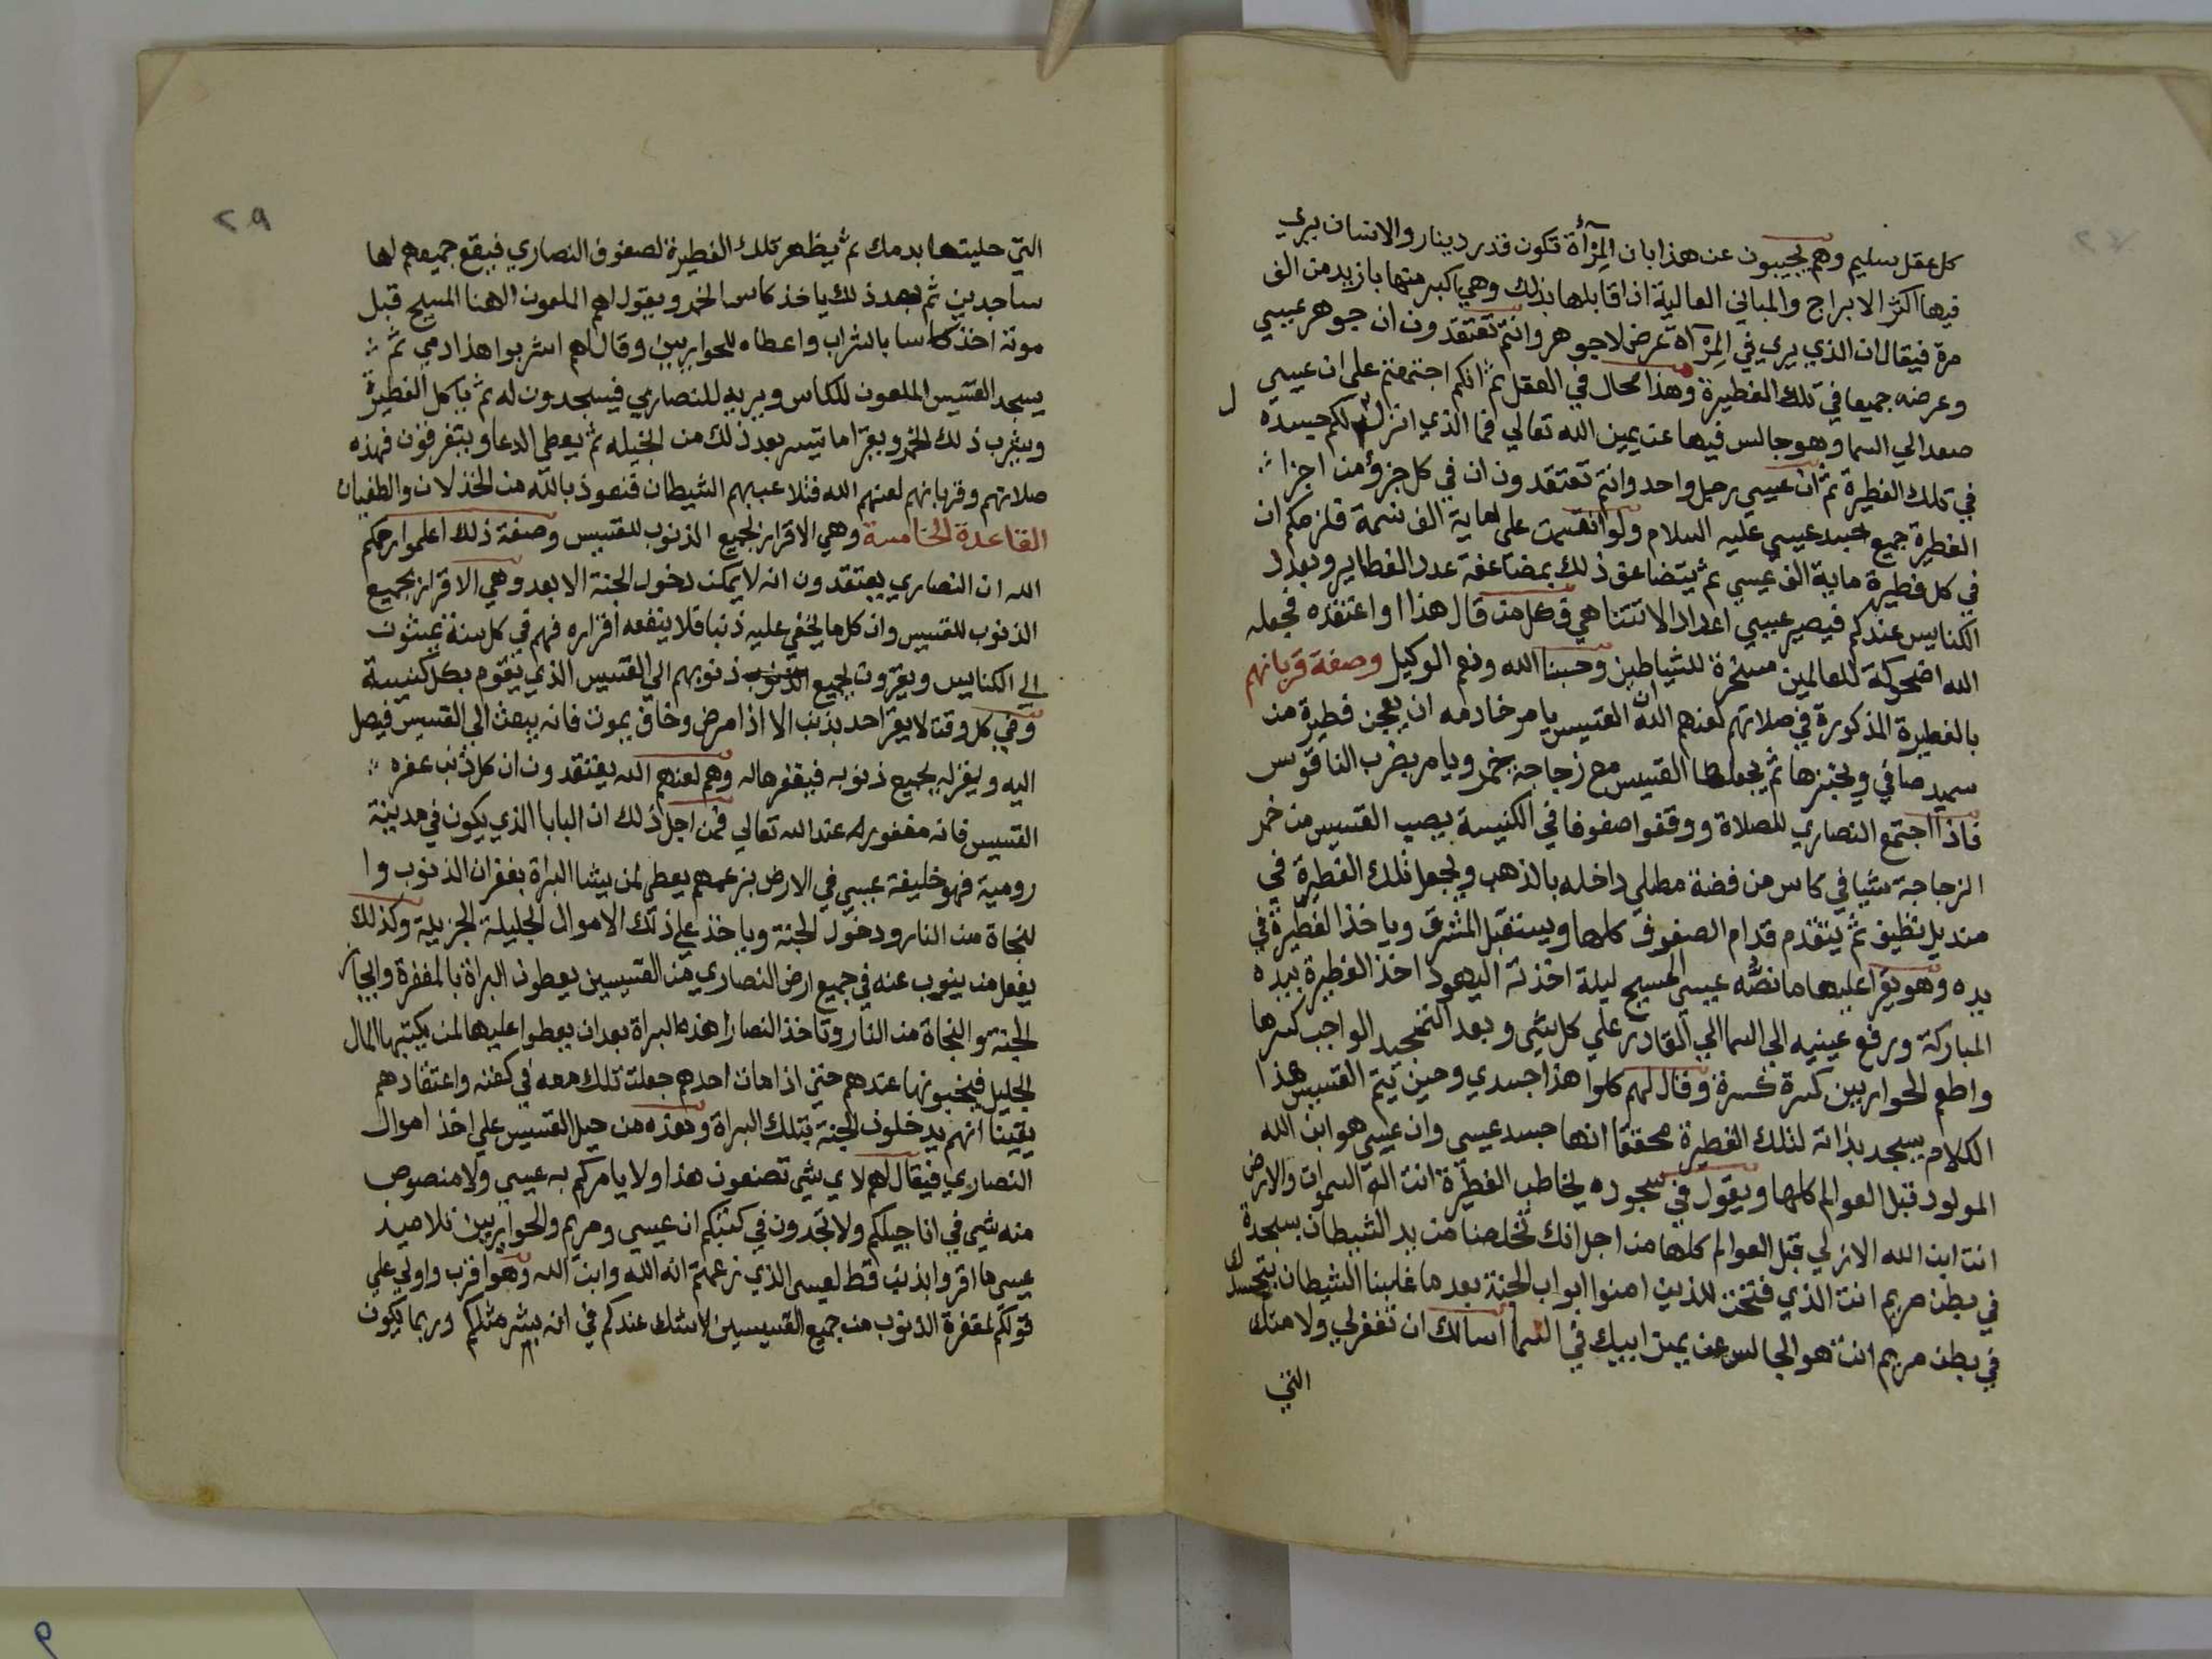 كل عقل سليم وهم يجيبون عن هذا بان المرآة تكون قدر دينار والانسان يري
فيها اكثر الابراج والمباني العالية اذا قابلها بذلك وهي اكبر منها بازيد من الف
مرة فيقال ان الذي يري في المرآة عرض لا جوهر وانتم تعتقدون ان جوهر عيسي
وعرضه جميعا في تلك الفطيرة وهذا محال في العقل ثم انكم اجتمعتم علي ان عيسي
صعد الي السما وهو جالس فيها عن يمين الله تعالي فما الذي انزل لكم جسده
في تلك الفطيرة ثم ان عيسي رجل واحد وانتم تعتقدون ان في كل جزؤ من اجزا
الفطيرة جميع جسد عيسي عليه السلام ولو انقسمت علي ماية الف قسمة فلزمكم ان
في كل فطيرة ماية الف عيسي ثم يتضاعف ذلك بمضاعفة عدد الفطاير وبعدد
الكنايس عندكم فيصير عيسي اعدادا لا تتناهي فكل من قال هذا او اعتقده فجعله
الله اضحوكة للعالمين مسخرة للشياطين وحسبنا الله ونعم الوكيل وصفة قربانهم
بالفطيرة المذكورة في صلاتهم لعنهم الله ان القسيس يامر خادمه ان يعجن فطيرة من
سميد صافي ويخبزها ثم يجعلها القسيس مع زجاجة خمر ويامر بضرب الناقوس
فاذا اجتمع النصاري للصلاة ووقفوا صفوفا في الكنيسة يصب القسيس من خمر
الزجاجة شيا في كاس من فضة مطلي داخله بالذهب ويجعل تلك الفطيرة في
منديل نظيف ثم يتقدم قدام الصفوف كلها ويستقبل المشرق وياخذ الفطيرة في
يده وهو يقرا عليها ما نصه عيسي المسيح ليلة اخذته اليهود اخذ الفطيرة بيده
المباركة ورفع عينيه الي السما الي القادر علي كل شي وبعد التمجيد الواجب كسرها
واطعم الحواريين كسرة كسرة وقال لهم كلوا هذا جسدي وحين يتم القسيس هذا
الكلام يسجد بذاته لتلك الفطيرة محققا انها جسد عيسي وان عيسي هو ابن الله
المولود قبل العوالم كلها ويقول في سجوده يخاطب الفطيرة انت اله السموات والارض
انت ابن الله الازلي قبل العوالم كلها من اجل انك تخلصنا من يد الشيطان بسجدة
في بطن مريم انت الذي فتحت للذين امنوا ابواب الجنة بعد ما غلبنا الشيطان بتجسدك
في بطن مريم انت هو الجالس عن يمين ابيك في السما اسالك ان تغفر لي ولامتك
التي
٢٩
التي حليتها بدمك ثم يظهر تلك الفطيرة لصفوف النصاري فيقع جميعهم لها
ساجدين ثم بعد ذلك ياخذ كاس الخمر ويقول لهم الملعون الهنا المسيح قبل
موته اخذ كاسا بالشراب واعطاه للحواريين وقال لهم اشربوا هذا دمي ثم
يسجد القسيس الملعون للكاس ويريه للنصاري فيسجدون له ثم ياكل الفطيرة
ويشرب ذلك الخمر ويقرا ما تيسر بعد ذلك من انجيله ثم يعطي الدعا ويتفرقون فهذه
صلاتهم وقربانهم لعنهم الله فتلاعب بهم الشيطان فنعوذ بالله من الخذلان والطغيان
القاعدة الخامسة وهي الاقرار بجميع الذنوب للقسيس وصفة ذلك اعلموا رحمكم
الله ان النصاري يعتقدون انه لا يمكن دخول الجنة الا بعد وهي الاقرار بجميع
الذنوب للقسيس وان كل ما يخفي عليه ذنبا فلا ينفعه اقراره فهم في كل سنة يمشون
الي الكنايس ويقرون بجميع الذنوب ذنوبهم الي القسيس الذي يقوم بكل كنيسة
وفي كل وقت لا يقر احد بذنب الا اذا مرض وخاف يموت فانه يبعث الي القسيس فيصل
اليه ويقر له بجميع ذنوبه فيغفرها له وهم لعنهم الله يعتقدون ان كل ذنب غفره
القسيس فانه مغفور له عند الله تعالي فمن اجل ذلك ان البابا الذي يكون في مدينة
رومية فهو خليفة عيسي في الارض بزعمهم يعطي لمن يشا البراة بغفران الذنوب وا
لنجاة من النار ودخول الجنة وياخذ علي ذلك الاموال الجليلة الجزيلة وكذلك
يفعل من ينوب عنه في جميع ارض النصاري من القسيسين يعطون البراة بالمغفرة وايجاز
الجنة والنجاة من النار وتاخذ النصارا هذه البراة بعد ان يعطوا عليها لمن يكتبها المال
الجليل فيخبونها عندهم حتي اذا مات احدهم جعلت تلك معه في كفنه واعتقادهم
يقينا انهم يدخلون الجنة بتلك البراة وهذه من حيل القسيس علي اخذ اموال
النصاري فيقال لهم لاي شي تصنعون هذا ولا يامركم به عيسي ولا منصوص
منه شي في اناجيلكم ولا تجدون في كتبكم ان عيسي ومريم والحواريين تلاميذ
عيسي ما اقروا بذنب قط لعيسي الذي زعمتم انه الله وابن الله وهو اقرب واولي علي
قولكم لمغفرة الذنوب من جميع القسيسين لا شك عندكم في انه بشر مثلكم وربما يكون